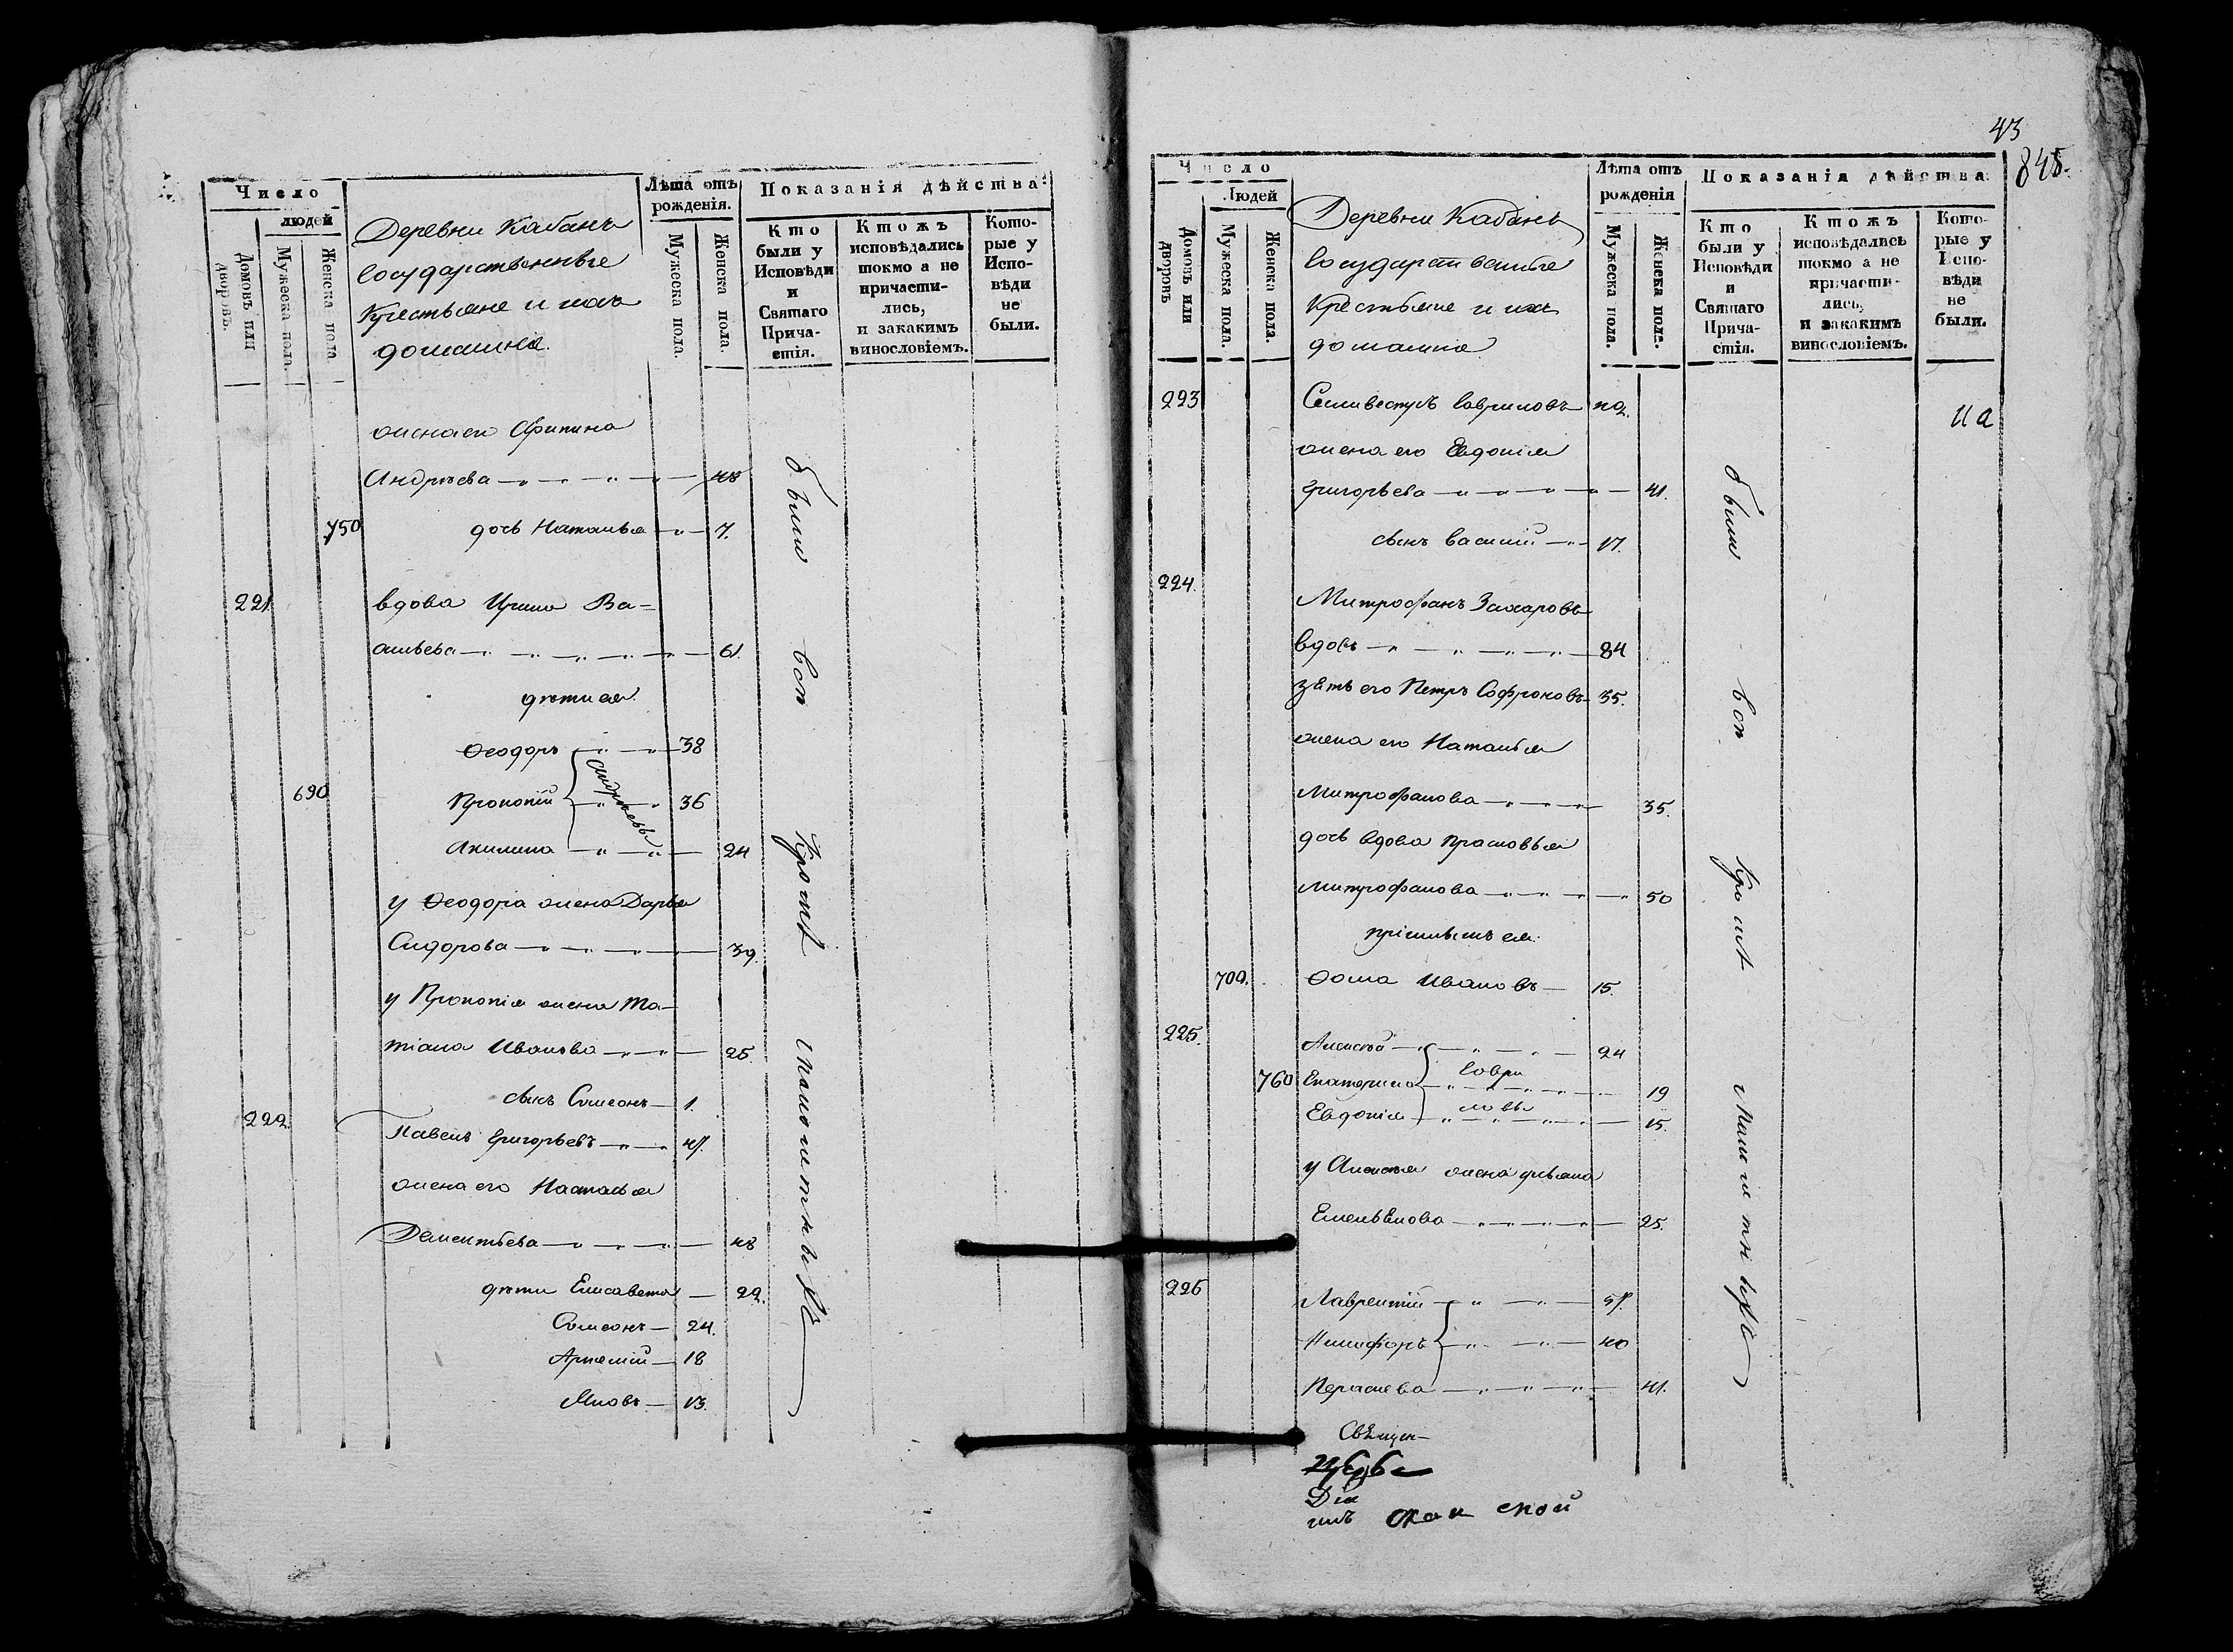 Число
людей
Домовъ или дворовъ.
Мужеска пола
Женска пола
Деревни Кабанъ
государственные
Крестьяне и ихъ
домашніе.
Лѣта отъ рожденія.
Мужеска пола.
Женска пола.
Показанія дѣйства:
Кто были у Исповѣди и Святаго Причастія.
Ктожъ исповѣдались токмо а не причастились, и закакимъ винословіемъ.
Которые у Исповѣди не были.
жена его Агрипина
Андрѣева 48
750 дочь Наталья 7.
221. вдова Ирина Ва=
сильева 61.
дѣти ея
Ѳеодоръ 38
690 Прокопій 36
Акилина 24
Андрѣевы
у Ѳеодора жена Дарья
Сидорова 39.
у Прокопія жена Та-
тіана Иванова 25.
сынъ Симеонъ 1.
222. Павелъ Григорьевъ 47.
жена его Настасья
Дементьева 48
дѣти Елисавета 22.
Симеонъ 24.
Артемій 18
Яковъ 13.
были вси Кромѣ малолетныхъ
43
845.
Число
Людей
Домовъ или дворовъ
Мужеска пола.
Женска пола.
Деревни Кабанъ
государственные
Крестьяне и ихъ
домашніе
Лѣта отъ рожденія
Мужеска пола.
Женска пола.
Показанія дѣйства
Кто были у Исповѣди и Святаго Причастія.
Ктожъ исповѣдались токмо а не причастились, и закакимъ винословіемъ.
Которые у Исповѣди не были.
223 Селивестръ Гавриловъ
жена его Евдокія
Григорьева 41.
сынъ Василій 17.
224. Митрофанъ Захаровъ
вдовъ 84
зять его Петръ Софроновъ 35.
жена его Наталья
Митрофанова 35.
дочь вдова Прасковья
Митрофанова 50
пріимышъ ея:
700. Ѳома Ивановъ 15.
225. Алексѣй 24
760 Екатерина 19
Евдокія 15.
Гаври
ловы
у Алексѣя жена Ульяна
Емельянова 25.
226 Лаврентій
Никифоръ 40
41.
были вси Кромѣ малолетныхъ
Свящеи-
Діа